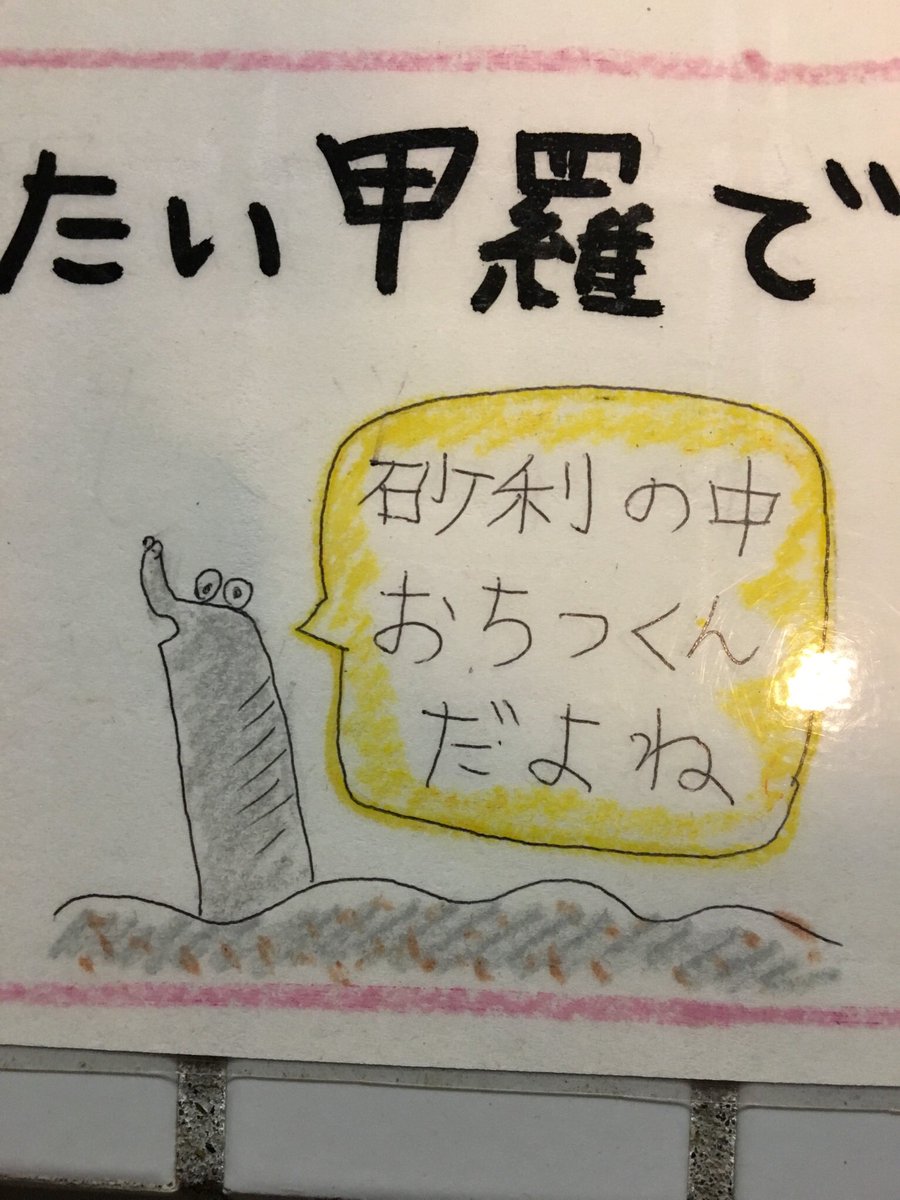 たい甲羅で
砂利の中
おちつくん
だよね